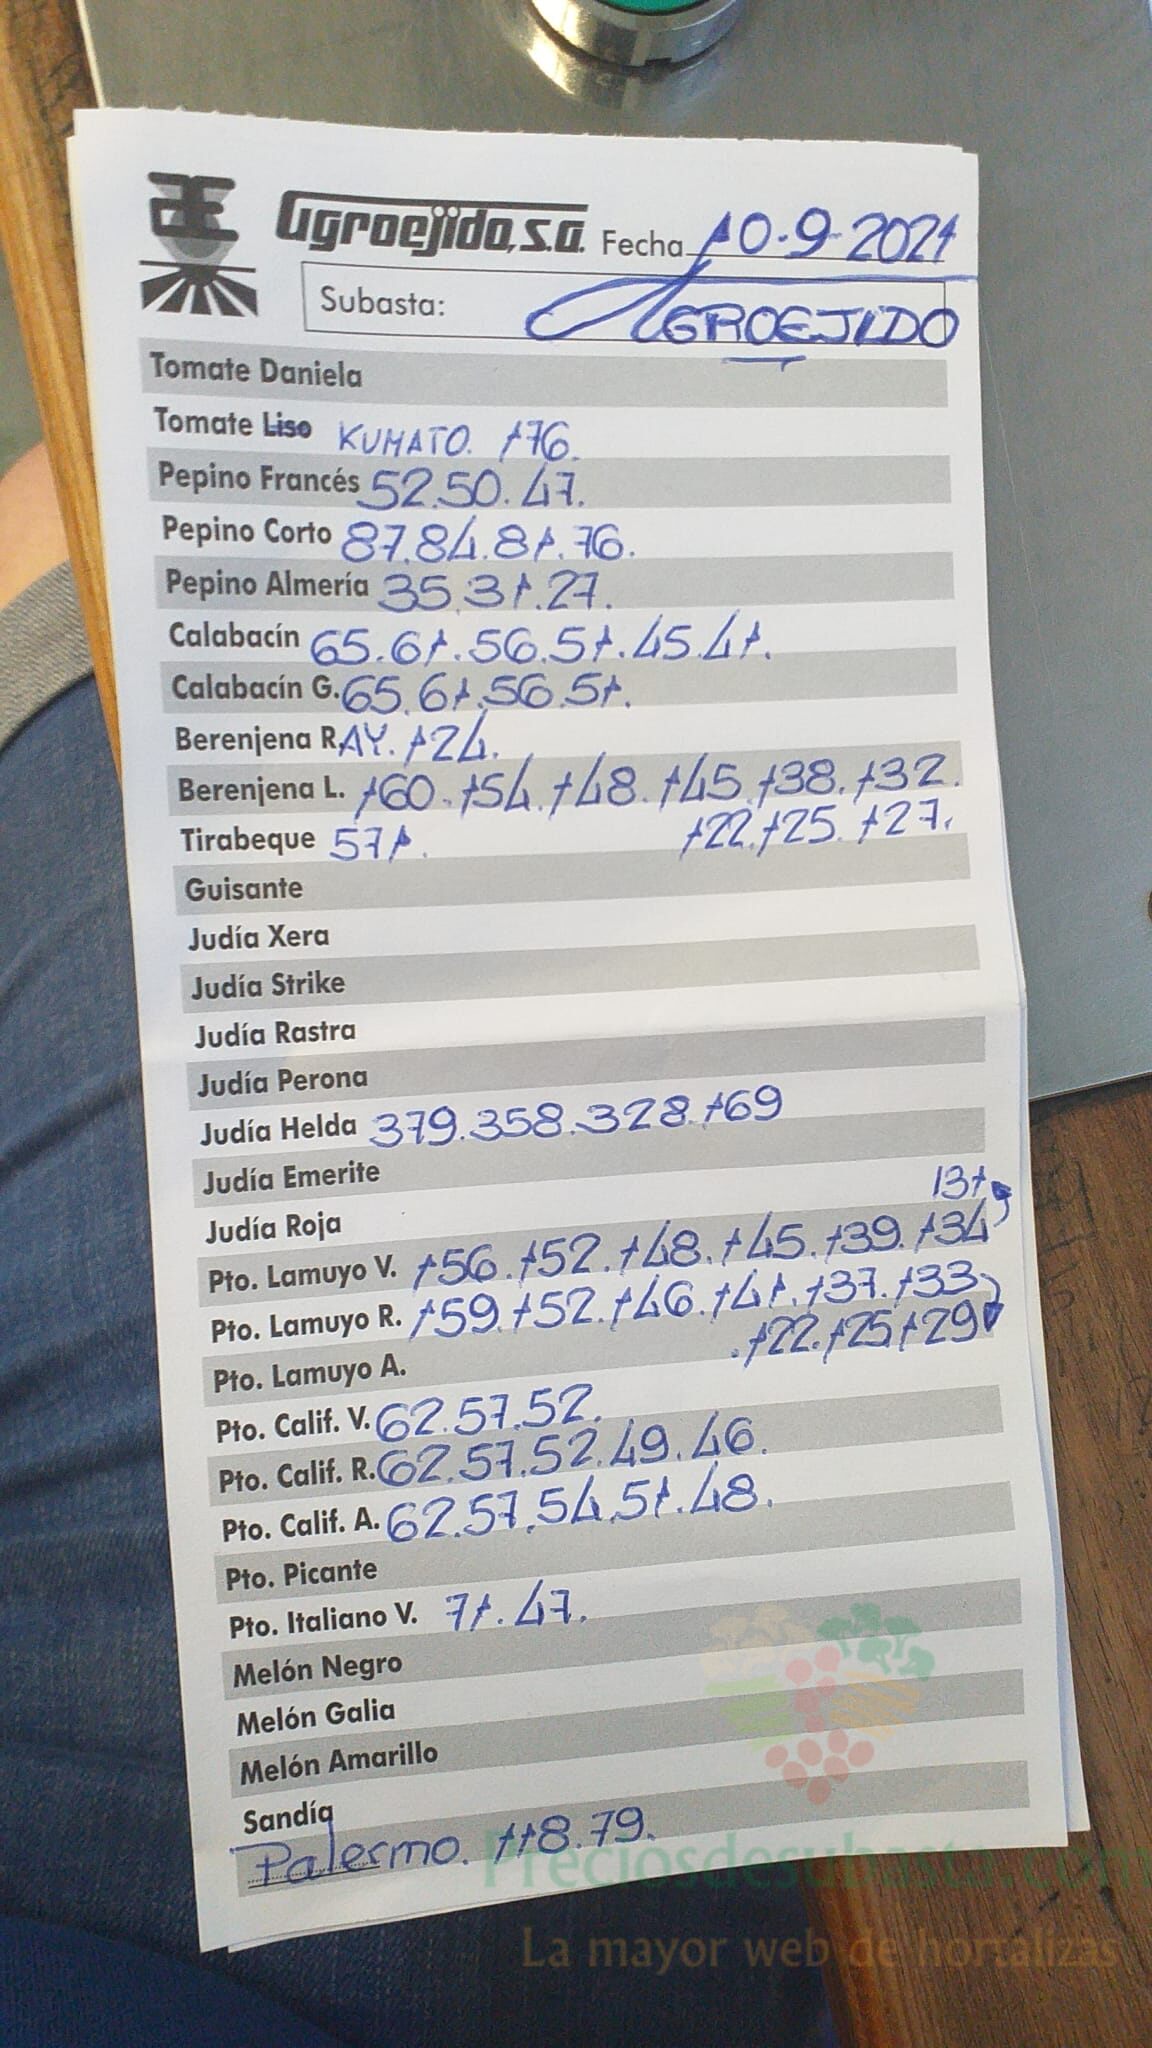 Agroejido, S.A. Fecha 10-9-2021
Subasta: AGROEJIDO
Tomate Daniela
Tomate Liso KUMATO. 176.
Pepino Francés 52.50.47.
Pepino Corto 87.84.81.76.
Pepino Almería 35.31.27.
Calabacín 65.61.56.51.45.41.
Calabacín G. 65.61.56.51.
Berenjena RAY. 124.
Berenjena L. 160.154.148.145.138.132.
Tirabeque 571. 122.125.127.
Guisante
Judía Xera
Judía Strike
Judía Rastra
Judía Perona
Judía Helda 379.358.328.169
Judía Emerite
Judía Roja 131
Pto. Lamuyo V. 156.152.148.145.139.134
Pto. Lamuyo R. 159.152.146.141.137.133
Pto. Lamuyo A. .122.125.129
Pto. Calif. V. 62.57.52.
Pto. Calif. R. 62.57.52.49.46.
Pto. Calif. A. 62.57.54.51.48.
Pto. Picante
Pto. Italiano V. 71.47.
Melón Negro
Melón Galia
Melón Amarillo
Sandía
Palermo. 118.79.
Preciosdesubasta.com
La mayor web de hortalizas